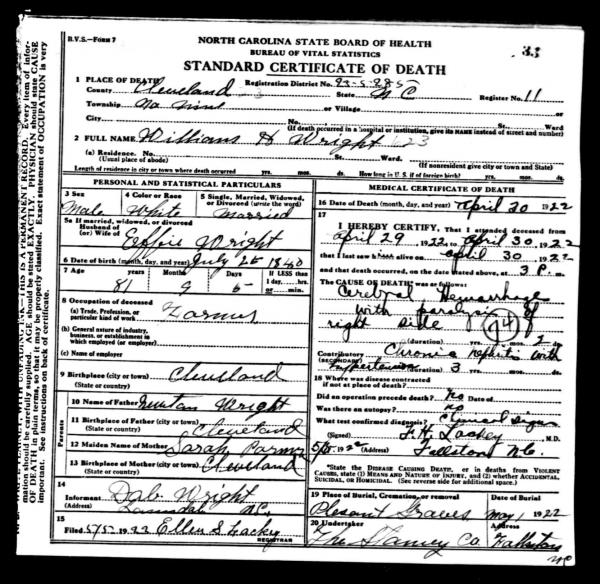 R.V.S.—Form 7
NORTH CAROLINA STATE BOARD OF HEALTH
BUREAU OF VITAL STATISTICS
33
STANDARD CERTIFICATE OF DEATH
1 PLACE OF DEATH Registration District No.
County Cleveland State N C Register No. 11
Township No Nine or Village
City (If death occurred in a hospital or institution, give its NAME instead of street and number) St. Ward
2 FULL NAME William H Wright 623
(a) Residence. No. St. Ward.
(Usual place of abode) (If nonresident give city or town and State)
Length of residence in city or town where death occurred yrs. mos. ds. How long in U. S. if of foreign birth? yrs. mos. ds.
PERSONAL AND STATISTICAL PARTICULARS
3 Sex 4 Color or Race 5 Single, Married, Widowed, or Divorced (write the word)
Male White Married
5a If married, widowed, or divorced
Husband of
(or) Wife of Effie Wright
6 Date of birth (month, day, and year) July 25 1840
7 Age years months Days If LESS than
81 9 5 1 day, hrs.
or min.
8 Occupation of deceased
(a) Trade, Profession, or
particular kind of work Farmer
(b) General nature of industry,
business, or establishment in
which employed (or employer)
(c) Name of employer
9 Birthplace (city or town) Cleveland
(State or country)
Parents
10 Name of Father Newton Wright
11 Birthplace of Father (city or town)
(State or country) Cleveland
12 Maiden Name of Mother Sarah
13 Birthplace of Mother (city or town)
(State or country) Cleveland
14
Informant Dab Wright
(Address) N.C.
15
Filed 5/5 1922 Ellen S Lackey
REGISTRAR
MEDICAL CERTIFICATE OF DEATH
16 Date of Death (month, day, and year) April 30 1922
17
I HEREBY CERTIFY, That I attended deceased from
April 29 1922, to April 30, 1922
that I last saw him alive on April 30 1922
and that death occurred, on the date stated above, at 3 P. m.
The CAUSE OF DEATH was as follows:
Cerebral Hemorrhage
with paralysis of
right side 74
(duration) yrs. mos. 2 ds.
Contributory Chronic nephritis with
(SECONDARY)
hypertension (duration) 3 yrs. mos. ds.
18 Where was disease contracted
if not at place of death?
Did an operation precede death? No Date of
Was there an autopsy? No
What test confirmed diagnosis? Clinical signs
(Signed) F.H. Lackey M.D.
5/5, 1922 (Address) Fallston N.C.
*State the DISEASE CAUSING DEATH, or in deaths from VIOLENT
CAUSES, state (1) MEANS AND NATURE OF INJURY, and (2) whether ACCIDENTAL,
SUICIDAL, or HOMICIDAL. (See reverse side for additional space.)
19 Place of Burial, Cremation, or removal Date of Burial
Plesant Graves May 1 1922
20 Undertaker Address
The Stamey Co Fallston
NC